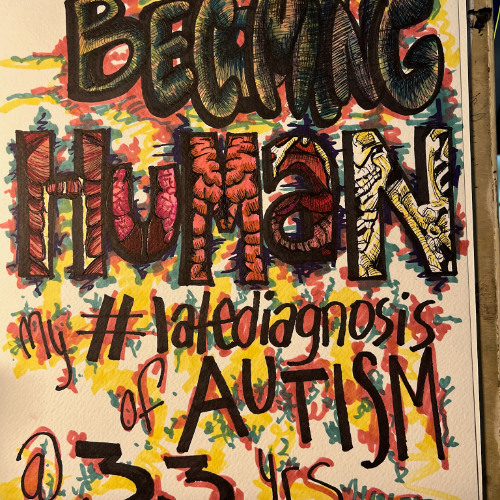 BECMING
HUMaN
my #latediagnosis
of AUTISM
@ 33 yrs